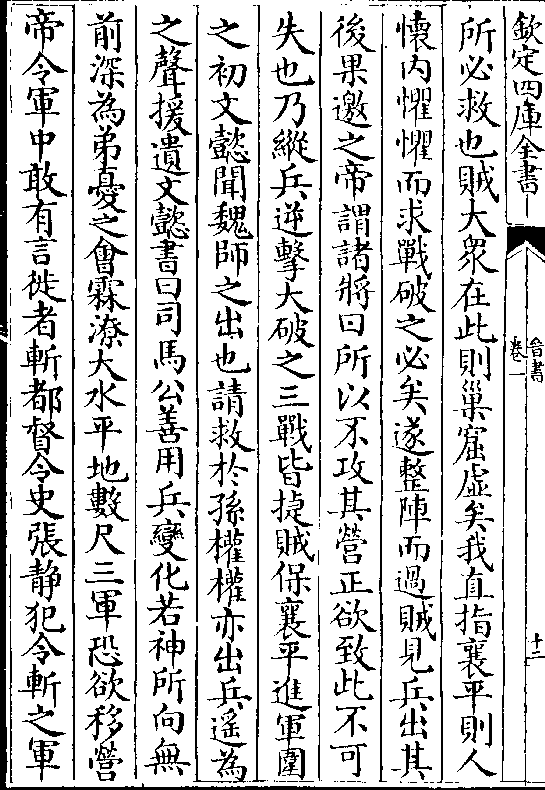 欽定四庫全書
晉書
卷一
十二
所必救也賊大衆在此則巢窟虛矣我直指襄平則人
懷内懼懼而求戰破之必矣遂整陣而過賊見兵出其
後果邀之帝謂諸將曰所以不攻其營正欲致此不可
失也乃縱兵逆擊大破之三戰皆捷賊保襄平進軍圍
之初文懿聞魏師之出也請救於孫權權亦出兵遥為
之聲援遺文懿書曰司馬公善用兵變化若神所向無
前深為弟憂之會霖潦大水平地數尺三軍恐欲移營
帝令軍中敢有言徙者斬都督令史張静犯令斬之軍